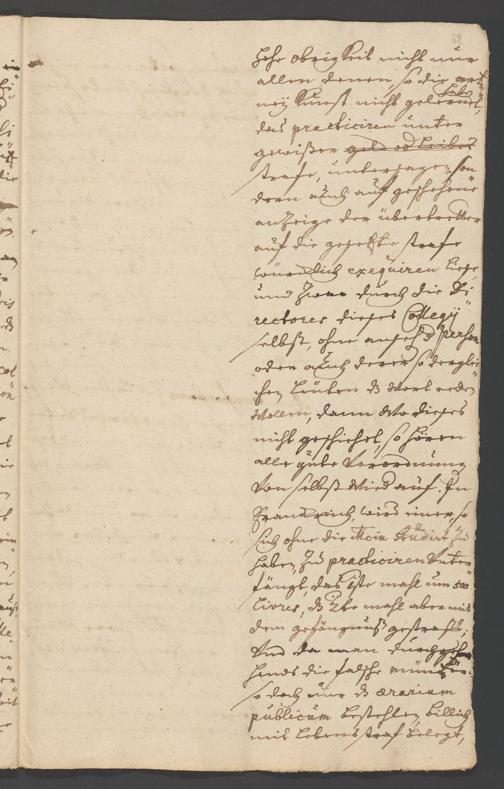 hohe obrigkeit nicht nur
allen denen, so die artz
neÿ kunst nicht gelernet,
das practiciren unter
gewißer geld od Leibes
strafe, untersage, son
dern auch auf geschehene
anzeige der übertretter
auf die gesetzte strafe
würcklich exequiren lege,
und zwar durch die Di
rectores dieses Collegÿ
selbst, ohne anseh d person
oder auch derer so derglei
chen Leuten ds wort reden
wollen, dann wo dieses
nicht geschiehet, so hören
alle gute Verordnung
von selbst wied auf. In
Franckreich wird einer, so
sich ohne die Medicin studirt zu
haben, zu practiciren unter
fängt, das 1ste mahl um 500
Livres, ds 2te mahl aber mit
dem gefängnuß gestrafft;
Und da man durchgeh
hends die falsche müntzer
so doch nur ds ærarium
publicum bestehlen, billich
mit Lebensstraf belegt,